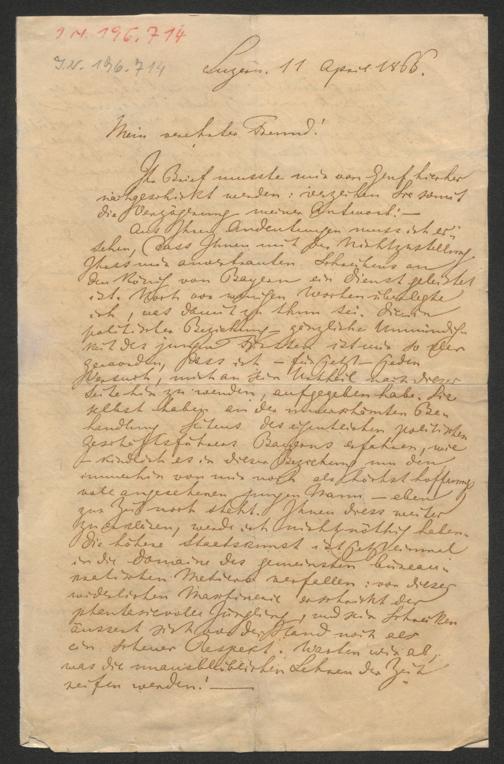 I.N. 196.714
I.N. 196.714
Luzern. 11 April 1866.
Mein verehrter Freund!
Ihr Brief musste mir von Genf hierher
nachgeschickt werden: verzeihen Sie somit
die Verzögerung meiner Antwort! —
Aus Ihren Andeutungen muss ich er-
sehen, dass Ihnen mit der Nichtzustellung
Ihres mir anvertrauten Schreibens an
den König von Bayern ein Dienst geleistet
ist. Noch vor wenigen Wochen überlegte
ich, was damit zu thun sei. Die in
politischer Beziehung gänzliche Unmündig-
keit des jungen Fürsten ist mir so klar
geworden, dass ich — für jetzt — jeden
Versuch, mich an sein Urtheil nach dieser
Seite hin zu wenden, aufgegeben habe. Sie
selbst haben an der unverschämten Be-
handlung Seitens des eigentlichen politischen
Geschäftsführers Bayerns erfahren, wie
kindlich es in dieser Beziehung um den
immerhin von mir noch als höchst hoffnungs
voll angesehenen jungen Mann — eben
zur Zeit noch steht. Ihnen diess weiter
zu erklären, werde ich nicht nöthig haben.
Die höhere Staatskunst ist jetzt einmal
in die Domaine des gemeinsten bureau-
cratischen Metiers verfallen: vor dieser
widerlichen Maschinerie erschrickt der
phantasievolle Jüngling, und sein Schrecken
äussert sich vor der Hand noch als
ein scheuer Respect. Warten wir ab,
was die unausbleiblichen Lehren der Zeit
reifen werden! —